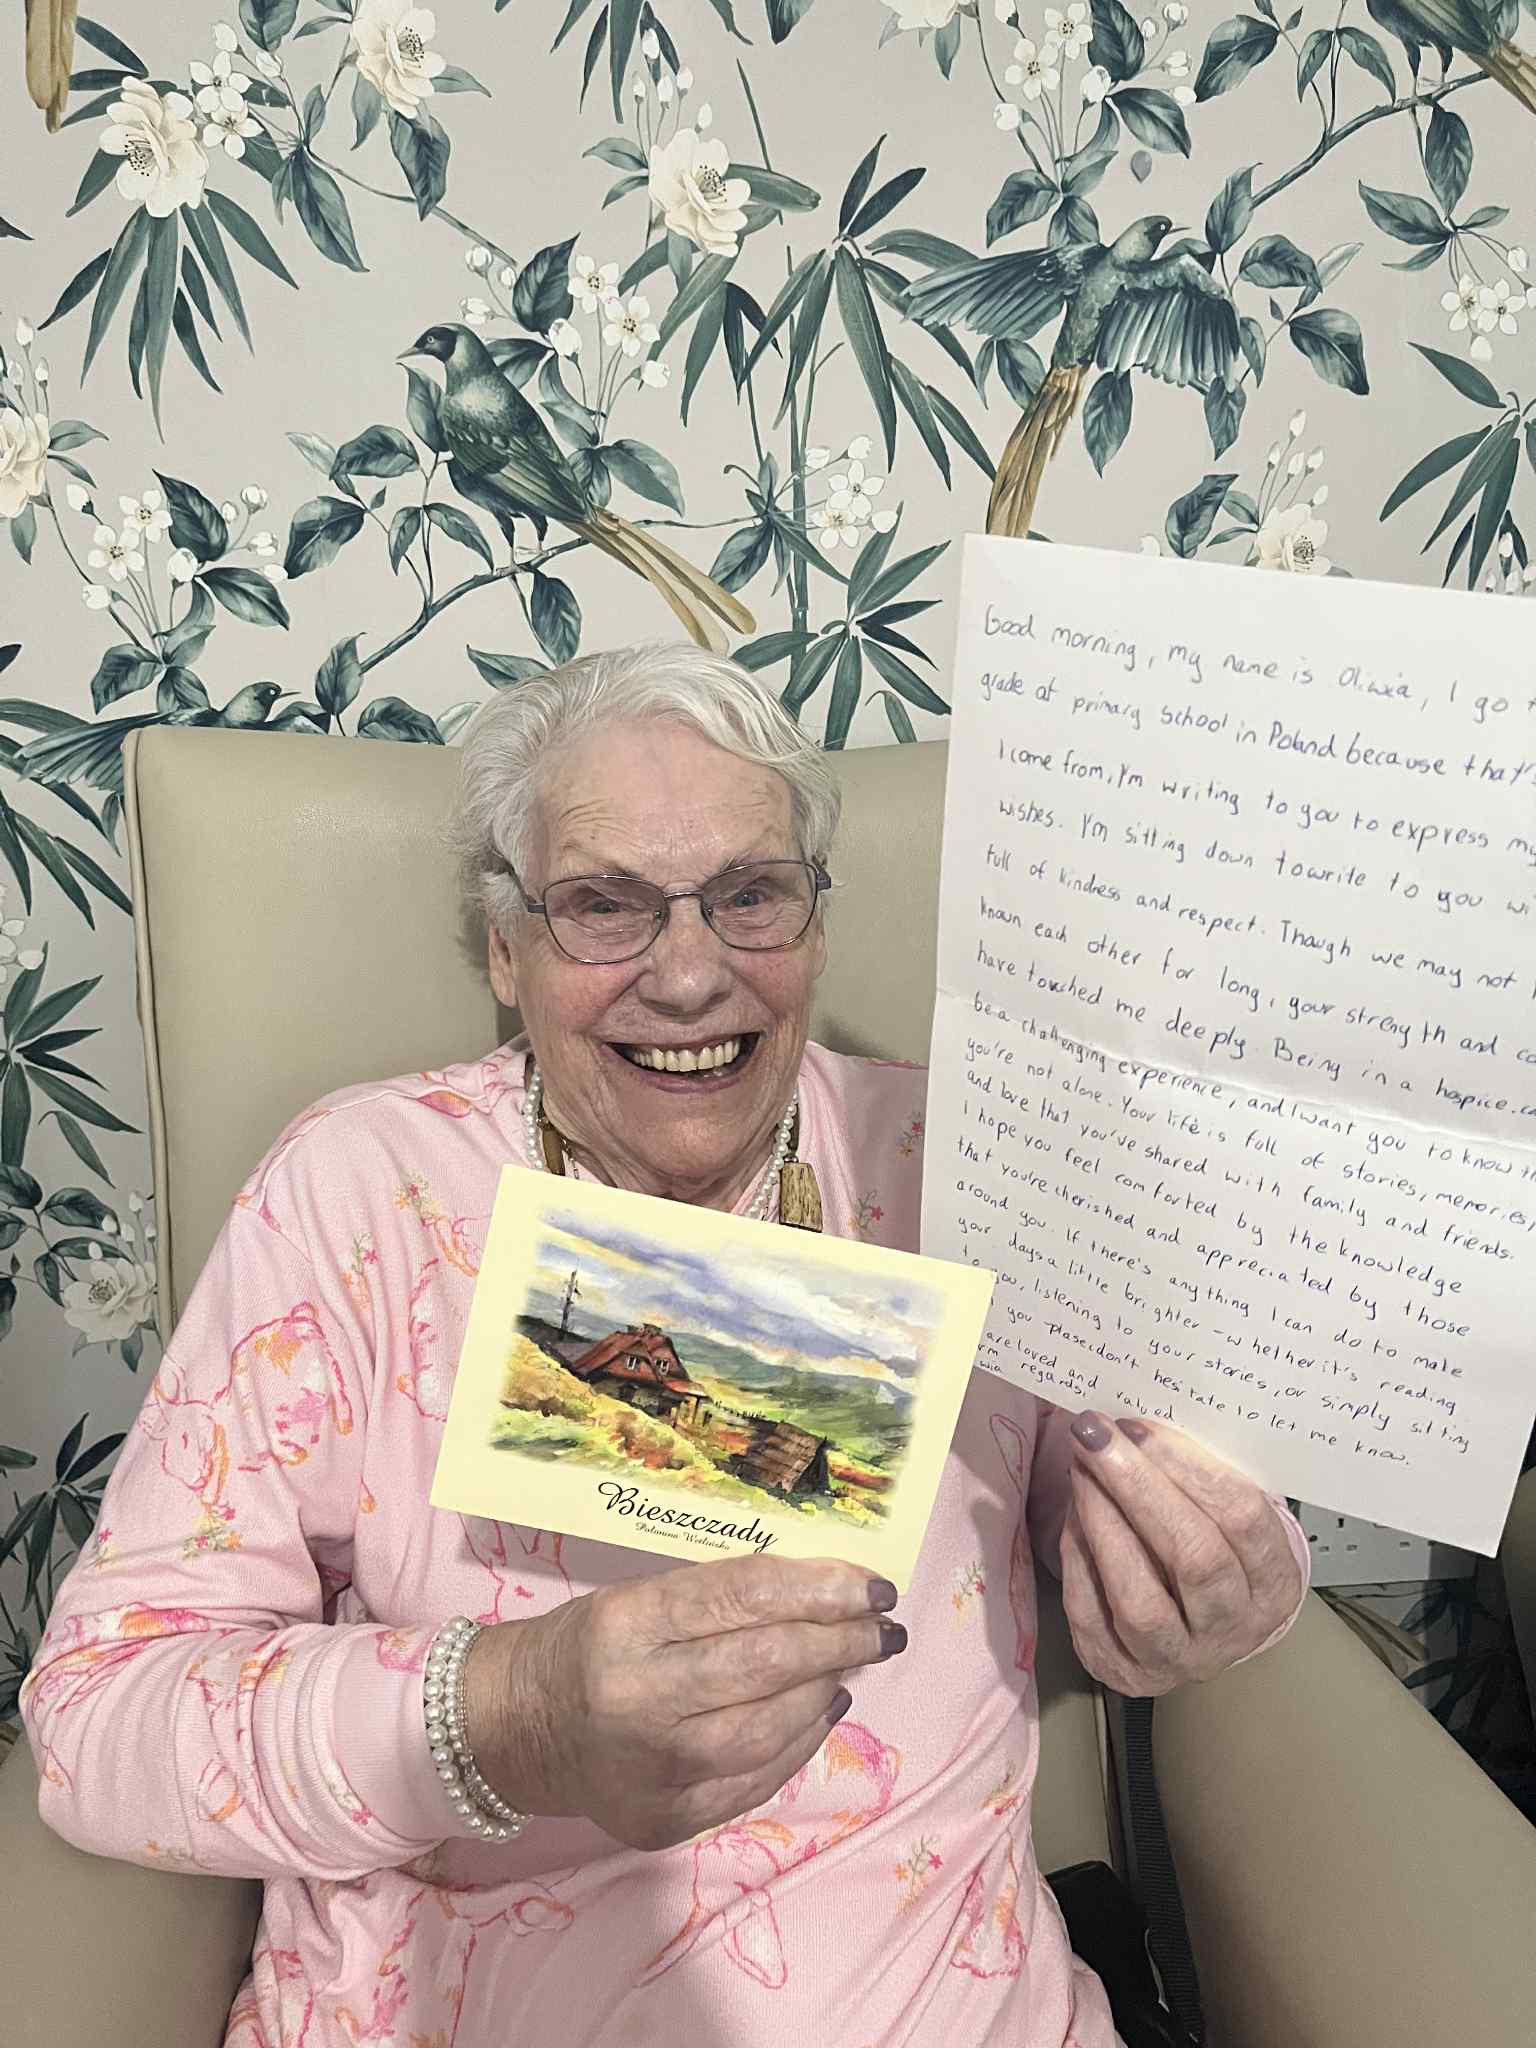 Good morning, my name is Oliwia, I go t
grade at primary school in Poland because that's
I come from, I'm writing to you to express my
wishes. I'm sitting down towrite to you wi
full of kindness and respect. Though we may not
known each other for long, your strength and co
have touched me deeply. Being in a hospice.ca
be a challenging experience, and I want you to know th
you're not alone. Your life is full of stories, memories,
and love that you've shared with family and friends.
I hope you feel comforted by the knowledge
that you're cherished and appreciated by those
around you. If there's anything I can do to make
your days a little brighter - whether it's reading
to you, listening to your stories, or simply sitting
you - plase don't hesitate to let me know.
are loved and valued.
rm regards,
wia
Bieszczady
Połonina Wetlińska